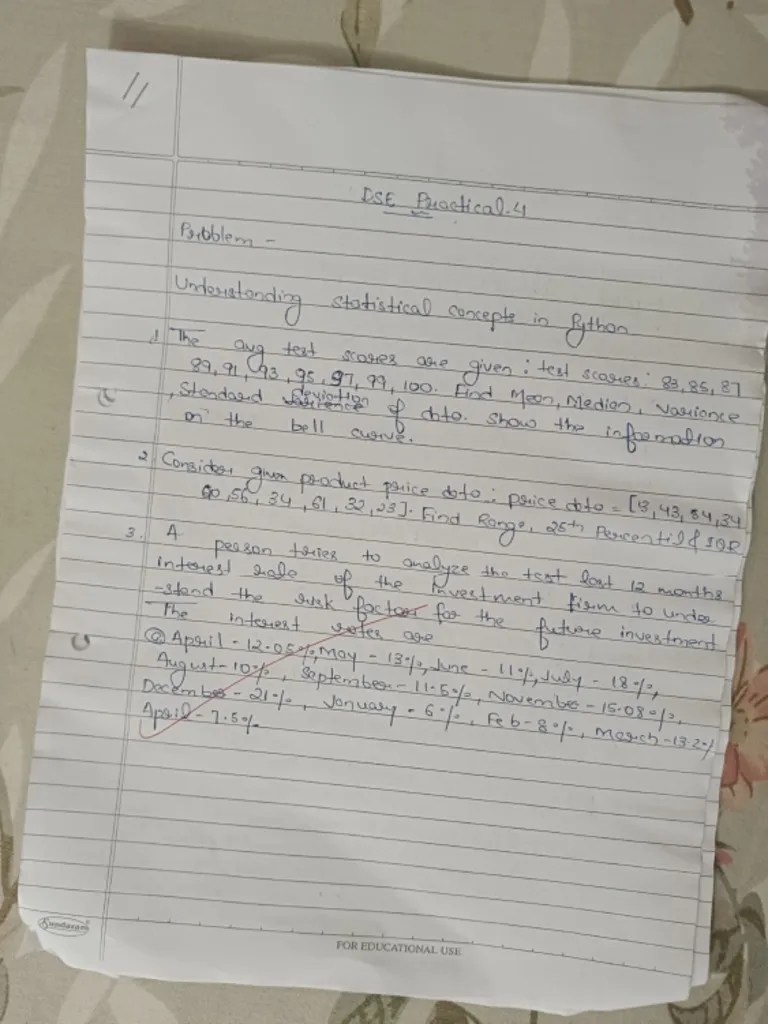 11
DSE Practical-4
Problem -
Understanding statistical concepts in Python
1. The avg test scores are given : test scores: 83, 85, 87
89, 91, 93, 95, 97, 99, 100. Find Mean, Median, variance
, Standard deviation of data. Show the information
on the bell curve.
2. Consider given product price data : price data = [13, 43, 54, 34
60, 56, 34, 61, 32, 23]. Find Range, 25th Percentil & IQR
3. A person tries to analyze the test last 12 months
interest rate of the investment firm to under
-stand the risk factor for the future investment
The interest rates are
April - 12.05%, May - 13%, June - 11%, July - 18%,
August - 10%, September - 11.5%, November - 15.08%,
December - 21%, January - 6%, Feb - 8%, March - 13.2%
April - 7.5%
Sundaram
FOR EDUCATIONAL USE